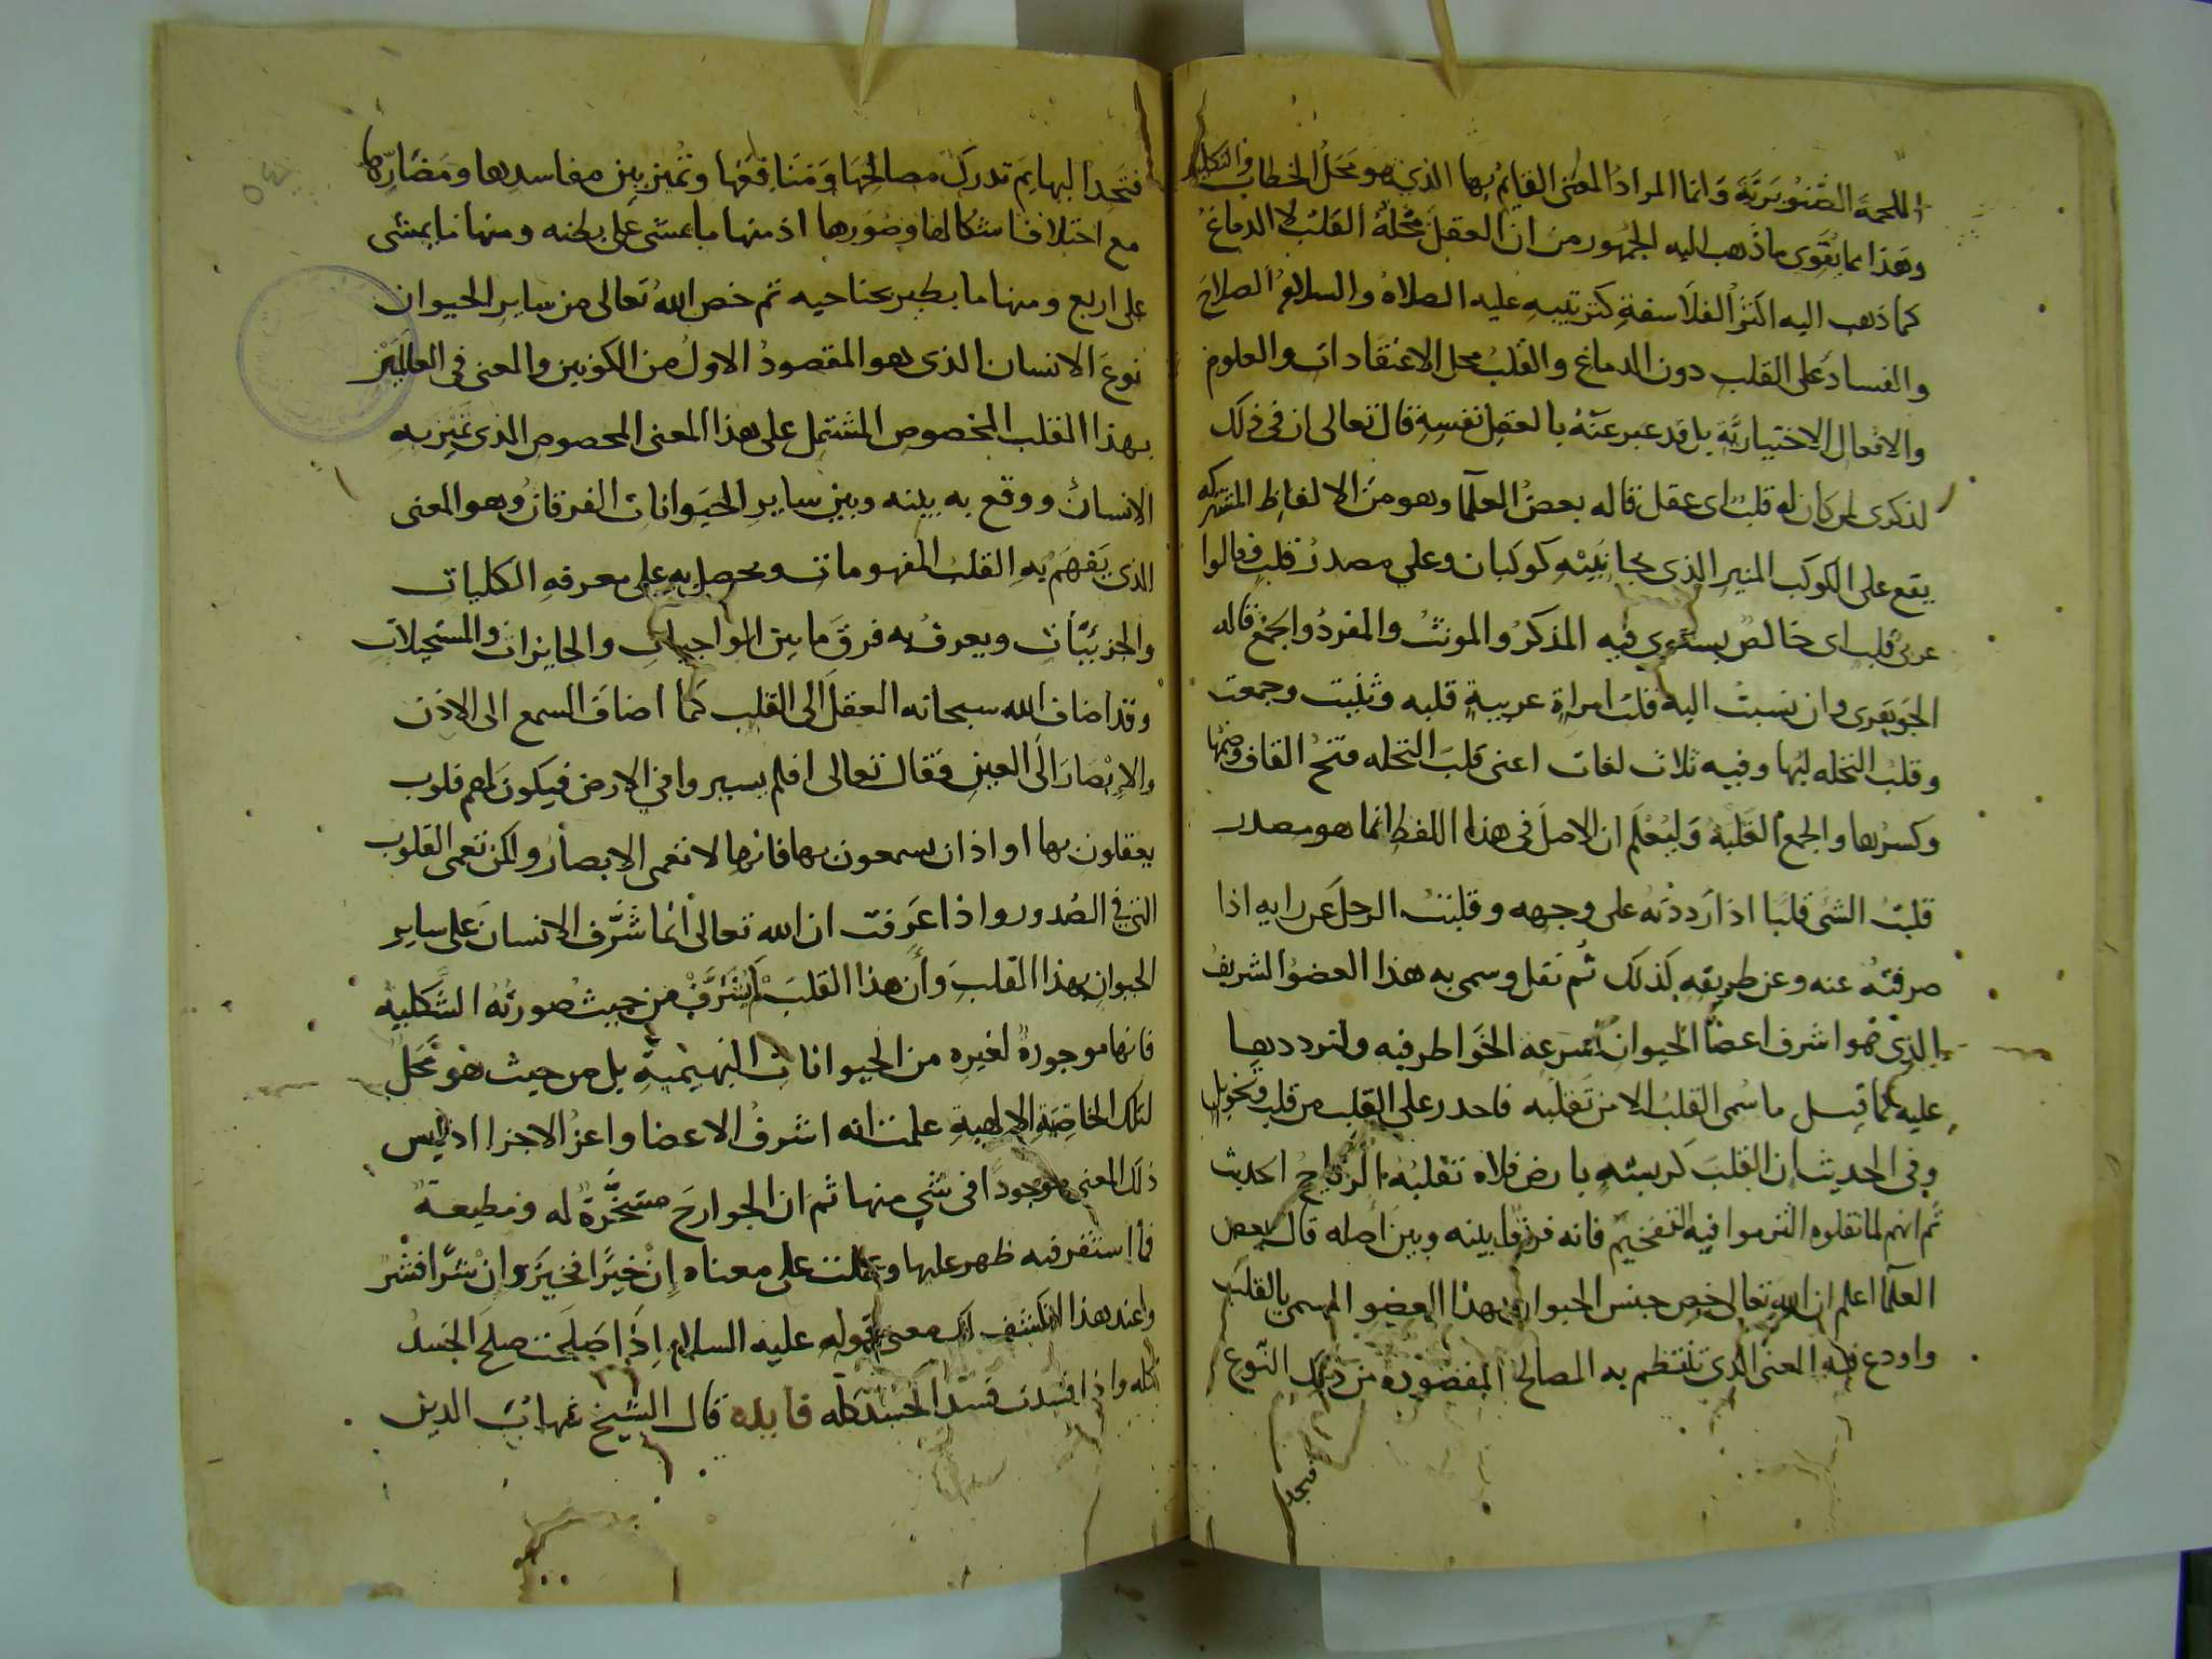 اللحمة الصنوبرية وانما المراد المعنى القايم بها الذي هو محل الخطاب والتكليف
وهذا مما يقوى ما ذهب اليه الجمهور من ان العقل محله القلب لا الدماغ
كما ذهب اليه اكثر الفلاسفة كترتيبه عليه الصلاة والسلام الصلاح
والفساد على القلب دون الدماغ والقلب محل الاعتقادات والعلوم
والافعال الاختيارية بل قد عبر عنه بالعقل نفسه قال تعالى ان في ذلك
لذكرى لمن كان له قلب اى عقل قاله بعض العلما وهو من الالفاظ المشتركه
يقع على الكوكب المنير الذى بجانبيه كوكبان وعلى مصدر قلب وقالوا
عربى قلب اى خالص يستوى فيه المذكر والمونث والمفرد والجمع قاله
الجوهرى وان نسبت اليه قلت امراة عربية قلبه وثنيت وجمعت
وقلب النخله لبها وفيه ثلاث لغات اعنى قلب النخله فتح القاف وضمها
وكسرها والجمع القلبه وليعلم ان الاصل فى هذا اللفظ انما هو مصدر
قلبت الشى قلبا اذا رددته على وجهه وقلبت الرجل عن رايه اذا
صرفته عنه وعن طريقه كذلك ثم نقل وسمى به هذا العضو الشريف
الذى هو اشرف اعضا الحيوان لسرعه الخواطر فيه ولترددها
عليه كما قيل ما سمى القلب الا من تقلبه فاحذر على القلب من قلب وتحويل
وفى الحديث ان القلب كريشه بارض فلاه تقلبه الرياح الحديث
ثم انهم لما نقلوه التزموا فيه التفخيم فانه فرقا بينه وبين اصله قال بعض
العلما اعلم ان الله تعالى خص جنس الحيوان بهذا العضو المسمى بالقلب
واودع فيه المعنى الذى تنتظم به المصالح المقصوده من ذلك النوع
فتجد
فتجد البهايم تدرك مصالحها ومنافعها وتميز بين مفاسدها ومضارها
مع اختلاف اشكالها وصورها اذ منها ما يمشى على بطنه ومنها ما يمشى
على اربع ومنها ما يطير بجناحيه ثم خص الله تعالى من ساير الحيوان
نوع الانسان الذى هو المقصود الاول من الكونين والمعنى فى العالمين
بهذا القلب المخصوص المشتمل على هذا المعنى المخصوص الذى تميز به
الانسان ووقع به بينه وبين ساير الحيوانات الفرقان وهو المعنى
الذى يفهم به القلب المفهومات ويحصل به على معرفه الكليات
والجزئيات ويعرف به فرق ما بين الواجبات والجايزات والمستحيلات
وقد اضاف الله سبحانه العقل الى القلب كما اضاف السمع الى الاذن
والابصار الى العين فقال تعالى افلم يسيروا في الارض فيكون لهم قلوب
يعقلون بها او اذان يسمعون بها فانها لا تعمى الابصار ولكن تعمى القلوب
التي في الصدور واذا عرفت ان الله تعالى انما شرف الانسان على ساير
الحيوان بهذا القلب وأن هذا القلب لم يشرف من حيث صورته الشكليه
فانها موجودة لغيره من الحيوانات البهيمية بل من حيث هو محل
لتلك الخاصية الالهية علمت انه اشرف الاعضا واعز الاجزا اذ ليس
ذلك المعنى موجودا فى شي منها ثم ان الجوارح مسخرة له ومطيعة
فما استقر فيه ظهر عليها وعملت على معناه إن خيرا فخير وان شرا فشر
وعند هذا انكشف لك معنى قوله عليه السلام اذا صلحت صلح الجسد
كله واذا فسدت فسد الجسد كله فايده قال الشيخ شهاب الدين